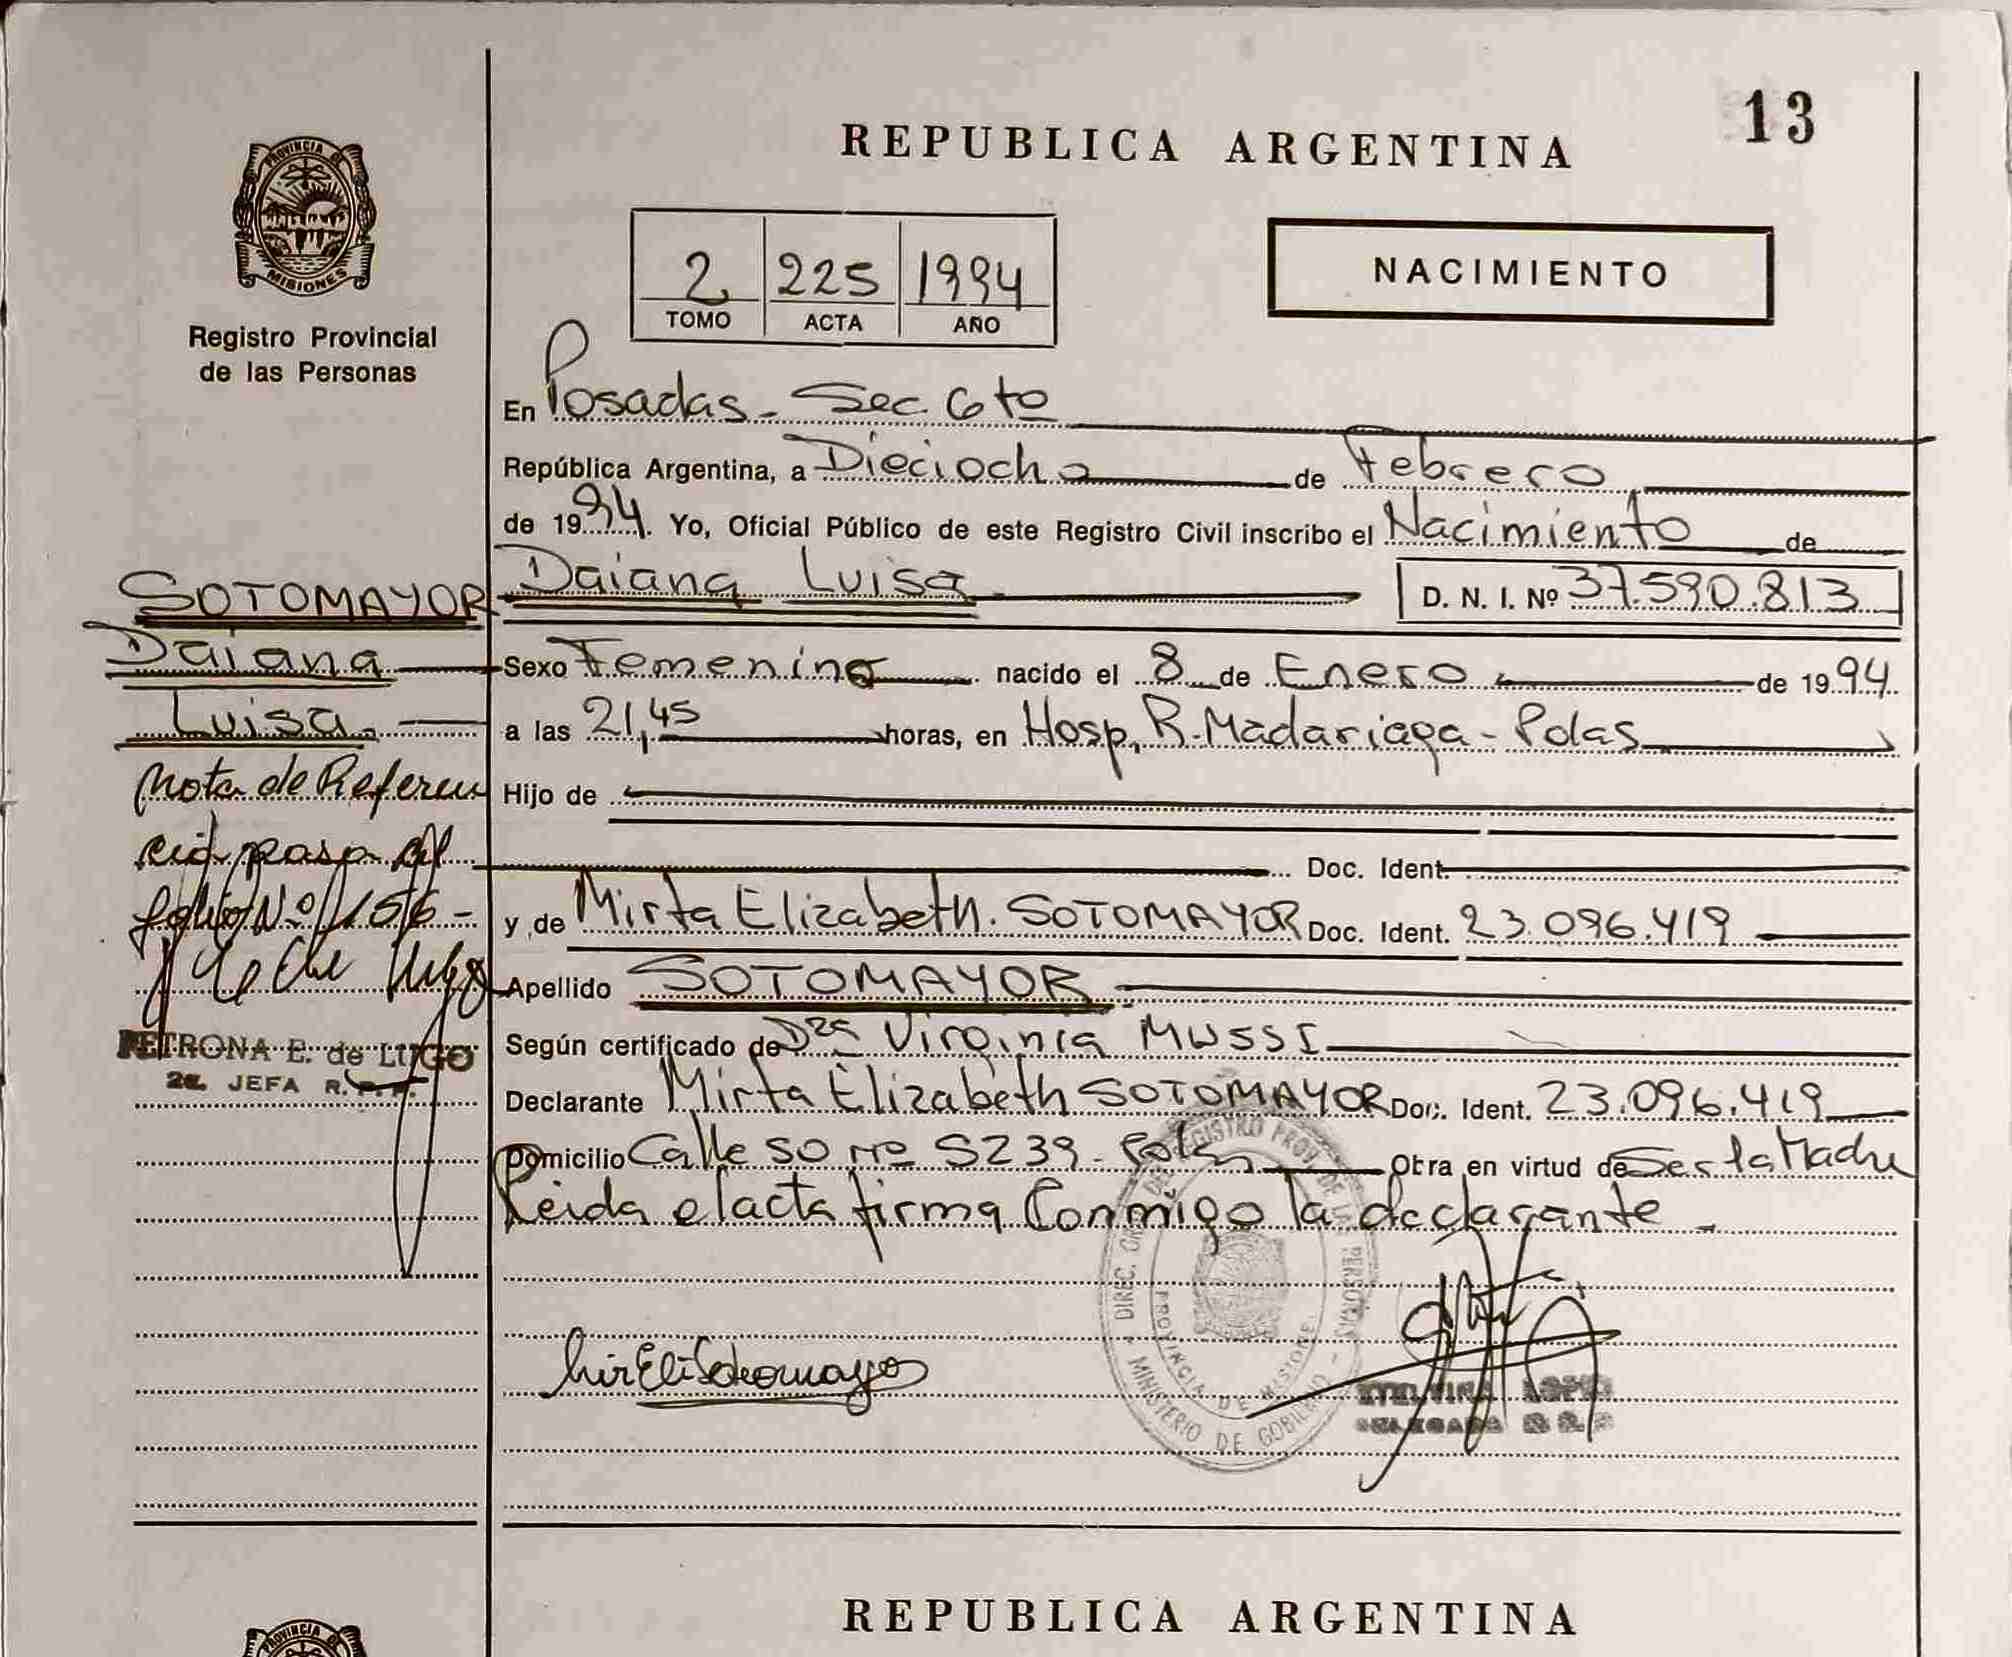 13
REPUBLICA ARGENTINA
PROVINCIA DE
MISIONES
Registro Provincial
de las Personas
2 225 1994
TOMO ACTA AÑO
NACIMIENTO
En Posadas - Sec. 6to
República Argentina, a Dieciocho de Febrero
de 1994. Yo, Oficial Público de este Registro Civil inscribo el Nacimiento de
Daiana Luisa D. N. I. Nº 37.590.813
Sexo Femenino nacido el 8 de Enero de 1994
a las 21,45 horas, en Hosp. R. Madariaga - Pdas
Hijo de
Doc. Ident.
y de Mirta Elizabeth. SOTOMAYOR Doc. Ident. 23.096.419
Apellido SOTOMAYOR
Según certificado de Dra Virginia MUSSI
Declarante Mirta Elizabeth SOTOMAYOR Doc. Ident. 23.096.419
Domicilio Calle 50 Nº 5239 - Pdas Obra en virtud de Ser la Madre
Leida el acta firma Conmigo la declarante -
SOTOMAYOR
Daiana
Luisa
Nota de Referen
cia pasa al
folio Nº 156 -
PETRONA E. de LUGO
2a. JEFA R. P. P.
DIREC. GRAL. DEL REGISTRO PROV. DE LAS PERSONAS
PROVINCIA DE MISIONES
MINISTERIO DE GOBIERNO
REPUBLICA ARGENTINA
PROVINCIA DE